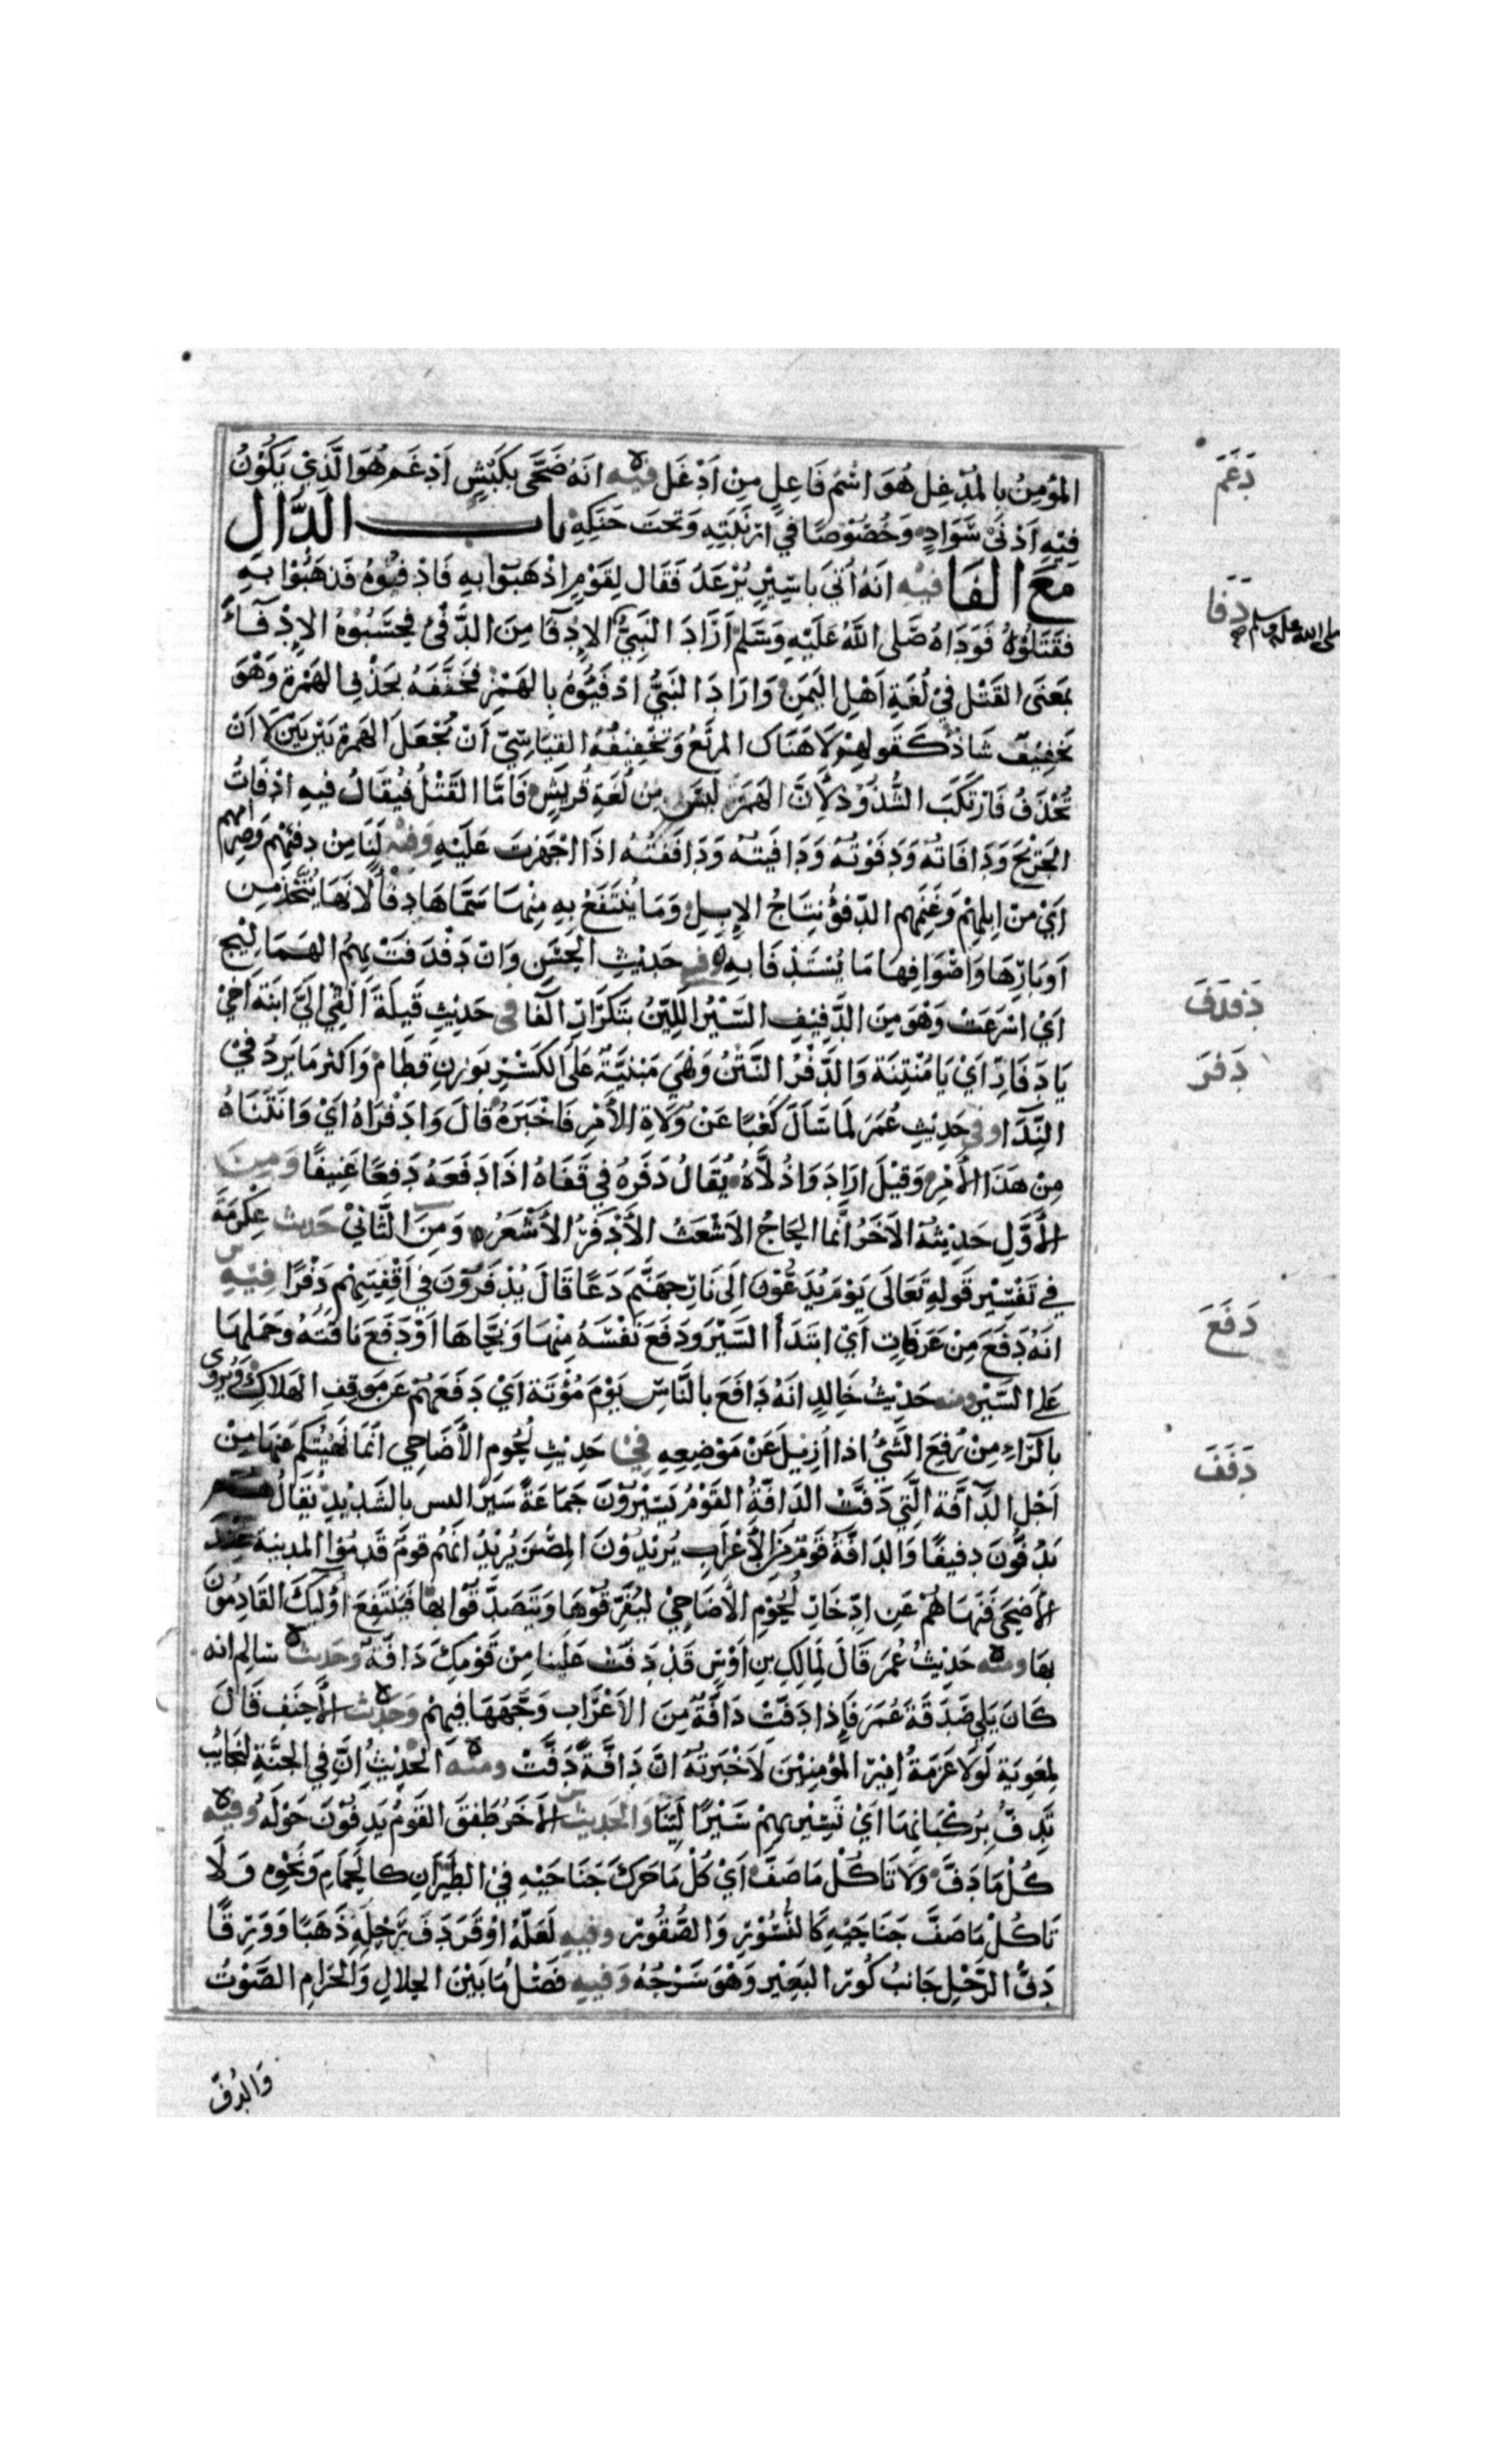 المؤمِنُ بالمدْغِلِ هُوَ اسْمُ فَاعِلٍ مِنْ اَدْغَلَ فيه انَهُ ضَحَّى بِكَبْشٍ اَدْغَمَ هُوَ الَّذِيْ يَكُوْنُ
دَغَمَ
فِيْهِ اَدْنَىْ سَوَادٍ وَخُصُوْصًا فِيْ ارْنَبَتِهِ وَتحتَ حَنَكِهِ باب الدَّالِ
مَعَ الفَا فيْهِ انَهُ اُتيَ باسِيْرٍ يُرْعَدُ فَقَالَ لِقَوْمٍ اذْهَبُوْا بهِ فَادْفُوْهُ فَذهَبُوْا بهِ
دَفَا
فقَتَلُوْهُ فَوَدَاهُ صَلى اللّهُ عَلَيْهِ وَسَلم اَرَادَ النَبِيُّ الاِدْفَا مِنَ الدَّفْئ فحسَبُوْهُ الاِدْفَآءَ
صلى الله عليه وسلم
بمَعنَى القَتْلِ فيْ لُغَةِ اَهْلِ اليَمَنِ وَارَادَ النَبيُّ ادْفَئِوُهُ بالهَمْزِ فخَفَّفَهُ بحَذْفِ الهَمْزَةِ وَهْوَ
تَخفِيْفٌ شَاذٌ كَقَولهِمْ لَا هَنَاكَ المرتَعُ وَتَخْفِيفُهُ القِيَاسِيّ اَنْ تُجْعَلَ الهَمزةُ بَيْنَ بَيْنَ لَا اَنْ
تُحْذَفُ فَارْتكَبَ الشُّذُوْذ لِاَنَّ الهَمْزَ ليسَ مِن لُغَةِ قُرَيشٍ فَامَّا القَتْلُ فيُقَالُ فيهِ ادْفَاتُ
الجَرِيْحَ وَدَافَاتهُ وَدَفَوْتهُ وَدَافيَتهُ وَدَافَفْتُهُ اذَا اجْهَزتَ عَلَيْهِ وَفيْه لَنَا مِنْ دِفئهِمْ وَصِرَامِهِم
اَيْ مِنْ اِبِلِهِمْ وَغَنَمِهِم الدّفؤُ نِتَاجُ الاِبِلِ وَمَا يُنتَفَعُ بِهِ مِنْهَا سَمَّاهَا دِفأً لَانَهَا يُتَّخَذُ مِن
اَوبَارِهَا وَاصْوَافِهَا مَا يُسْتَدْفَا بهِ وفي حَدِيْثِ الحَسَنِ وَانْ دَفْدَفَتْ بِهِمُ الهَمَاليْج
دَفدَفَ
اَيْ اسْرَعَتْ وَهْوَ مِنَ الدَّفِيْفِ السَّيْرُ اللَّيِّنُ بتَكرَارِ الْفَا في حَدِيْثِ قَيلَةَ اَلْقِي اِليَّ ابنَةَ اَخِيْ
يَا دَفَارِ اَيْ يَا مُنْتِنَة وَالدَّفْرُ النَّتْنُ وَهْيَ مَبْنيَّةٌ عَلَى الكَسْرِ بوَزنِ قَطَامْ وَاكثَر مَا يَرِدُ فيْ
دَفَرَ
النِّدَا وفي حَدِيْثِ عُمَرَ لمَا سَاَلَ كَعْبًا عَنْ وُلَاةِ الاَمْرِ فَاخْبَرَهُ قَالَ وَادَفْرَاهُ اَيْ وَانَتْنَاهُ
مِنْ هَذَا الاَمْرِ وَقيْلَ ارَادَ وَاذُلَّاهُ يُقَالُ دَفَرَهُ فِي قَفَاهُ اذَا دَفَعَهُ دَفعًا عَنِيفًا وَمِنَ
الاَوَّلِ حَدِيْثهُ الآخَرُ انَّما الحاجُ الاشْعَثُ الاَدْفَرُ الاَشْعَرُ وَمِنَ الثَّانيْ حَديث عِكْرِمَةَ
فِي تَفْسِيْرِ قَولِهِ تَعَالَى يَوْمَ يُدَعُّوْنَ اِلَى نَارِ جَهَنَّمَ دَعًّا قَالَ يُدْفَرُوْنَ في اَقْفِيَتِهِمْ دَفْرًا فِيْهِ
انَهُ دَفَعَ مِنْ عَرَفَاتٍ اَيْ ابتَدَأ السَّيْرَ وَدفَعَ نَفْسَهُ مِنْهَا وَنَحَّاهَا اَوْ دَفَعَ نَاقَتَهُ وَحَمَلهَا
دَفَعَ
عَلى السَّيْرِ ومنه حَدِيْثُ خَالِدٍ انَهُ دَافَعَ بالنَّاسِ يَوْمَ مُؤْتَة اَيْ دَفَعَهُمْ عَن مَوقِفِ الهَلَاكِ وَيُروى
بالرَّاءِ مِنْ رُفِعَ الشَّئُ اذَا اُزِيْلَ عَنْ مَوْضِعِهِ فيْ حَدِيْثِ لُحُوْمِ الاَضَاحِي انمَا نَهَيْتُكم عَنْهَا مِنْ
دَفَفَ
اَجْلِ الدَّافَّةِ الَّتِي دَفَّتْ الدَافَّةُ القَوْمُ يَسِيْرُوْنَ جَمَاعَةً سَيْرًا ليس بالشَّدِيْدِ يُقَالُ هُم
يَدُفُّونَ دفيفًا وَالدَافَّةُ قَوْمٌ مِنَ الاَعْرَابِ يُرِيْدُوْنَ المِصْرَ يُرِيْدُ انَهُم قومٌ قَدِمُوا المدينة عِنْدَ
الاَضحَى فَنَهَاهُمْ عَنِ ادِّخَارِ لُحُوْمِ الاَضَاحِيْ ليُفَرِّقُوْهَا وَيَتَصَدَّقُوْا بهَا فيَنْتَفِعَ اوُلٰئِكَ القَادِمُوْنَ
بهَا ومنه حَدِيْثُ عُمَرَ قَالَ لمَالِكِ بنِ اَوْسٍ قَدْ دَفَّتْ عَلَيْنَا مِنْ قَوْمِكَ دَافَّةٌ وحَديثُ سَالِمٍ انه
كَانَ يَلي صَدَقَةَ عُمَرَ فَإِذا دَفَّتْ دَافَّةٌ مِنَ الاَعْرَابِ وَجَّهَهَا فيهِمْ وَحَدِيْثُ الاَحنَفِ قَالَ
لمعَوِيَةَ لَوْلَا عَزمَةُ اَمِيْرِ المُؤْمِنِيْنَ لَاَخْبَرتهُ انَّ دَافَّةً دَفَّتْ ومنه الحَدِيْثُ انَّ فِي الجنَّةِ لنَجَايبَ
تَدِفُّ بِرُكْبَانِهَا اَيْ تَسِيْر بِهِمْ سَيْرًا لَيِّنًا وَالحَدِيْث الآخَرُ طَفِقَ القَوْمُ يَدِفّوْنَ حَوْلَهُ وفيه
كُلْ مَا دَفَّ وَلَا تَاكُلْ مَا صَفَّ اَيْ كُلْ مَا حَرَكَ جَنَاحَيْهِ فيْ الطَيَرَانِ كالحَمَامِ وَنَحْوِهِ وَلَا
تَاكُلْ مَا صَفَّ جَنَاحَيْهِ كَالنُّسُوْرِ وَالصُّقُوْرِ وفيهِ لَعَلَّهُ اوْقَرَ دَفَّ رَحْلِهِ ذَهَبًا وَوَرِقًا
دَفُّ الرَّحْلِ جَانبُ كُورِ البَعِيْرِ وَهْوَ سَرْجُهُ وَفيهِ فَصْلُ مَا بَيْنَ الحلالِ وَالحَرَامِ الصَّوْتُ
وَالدُّفّ